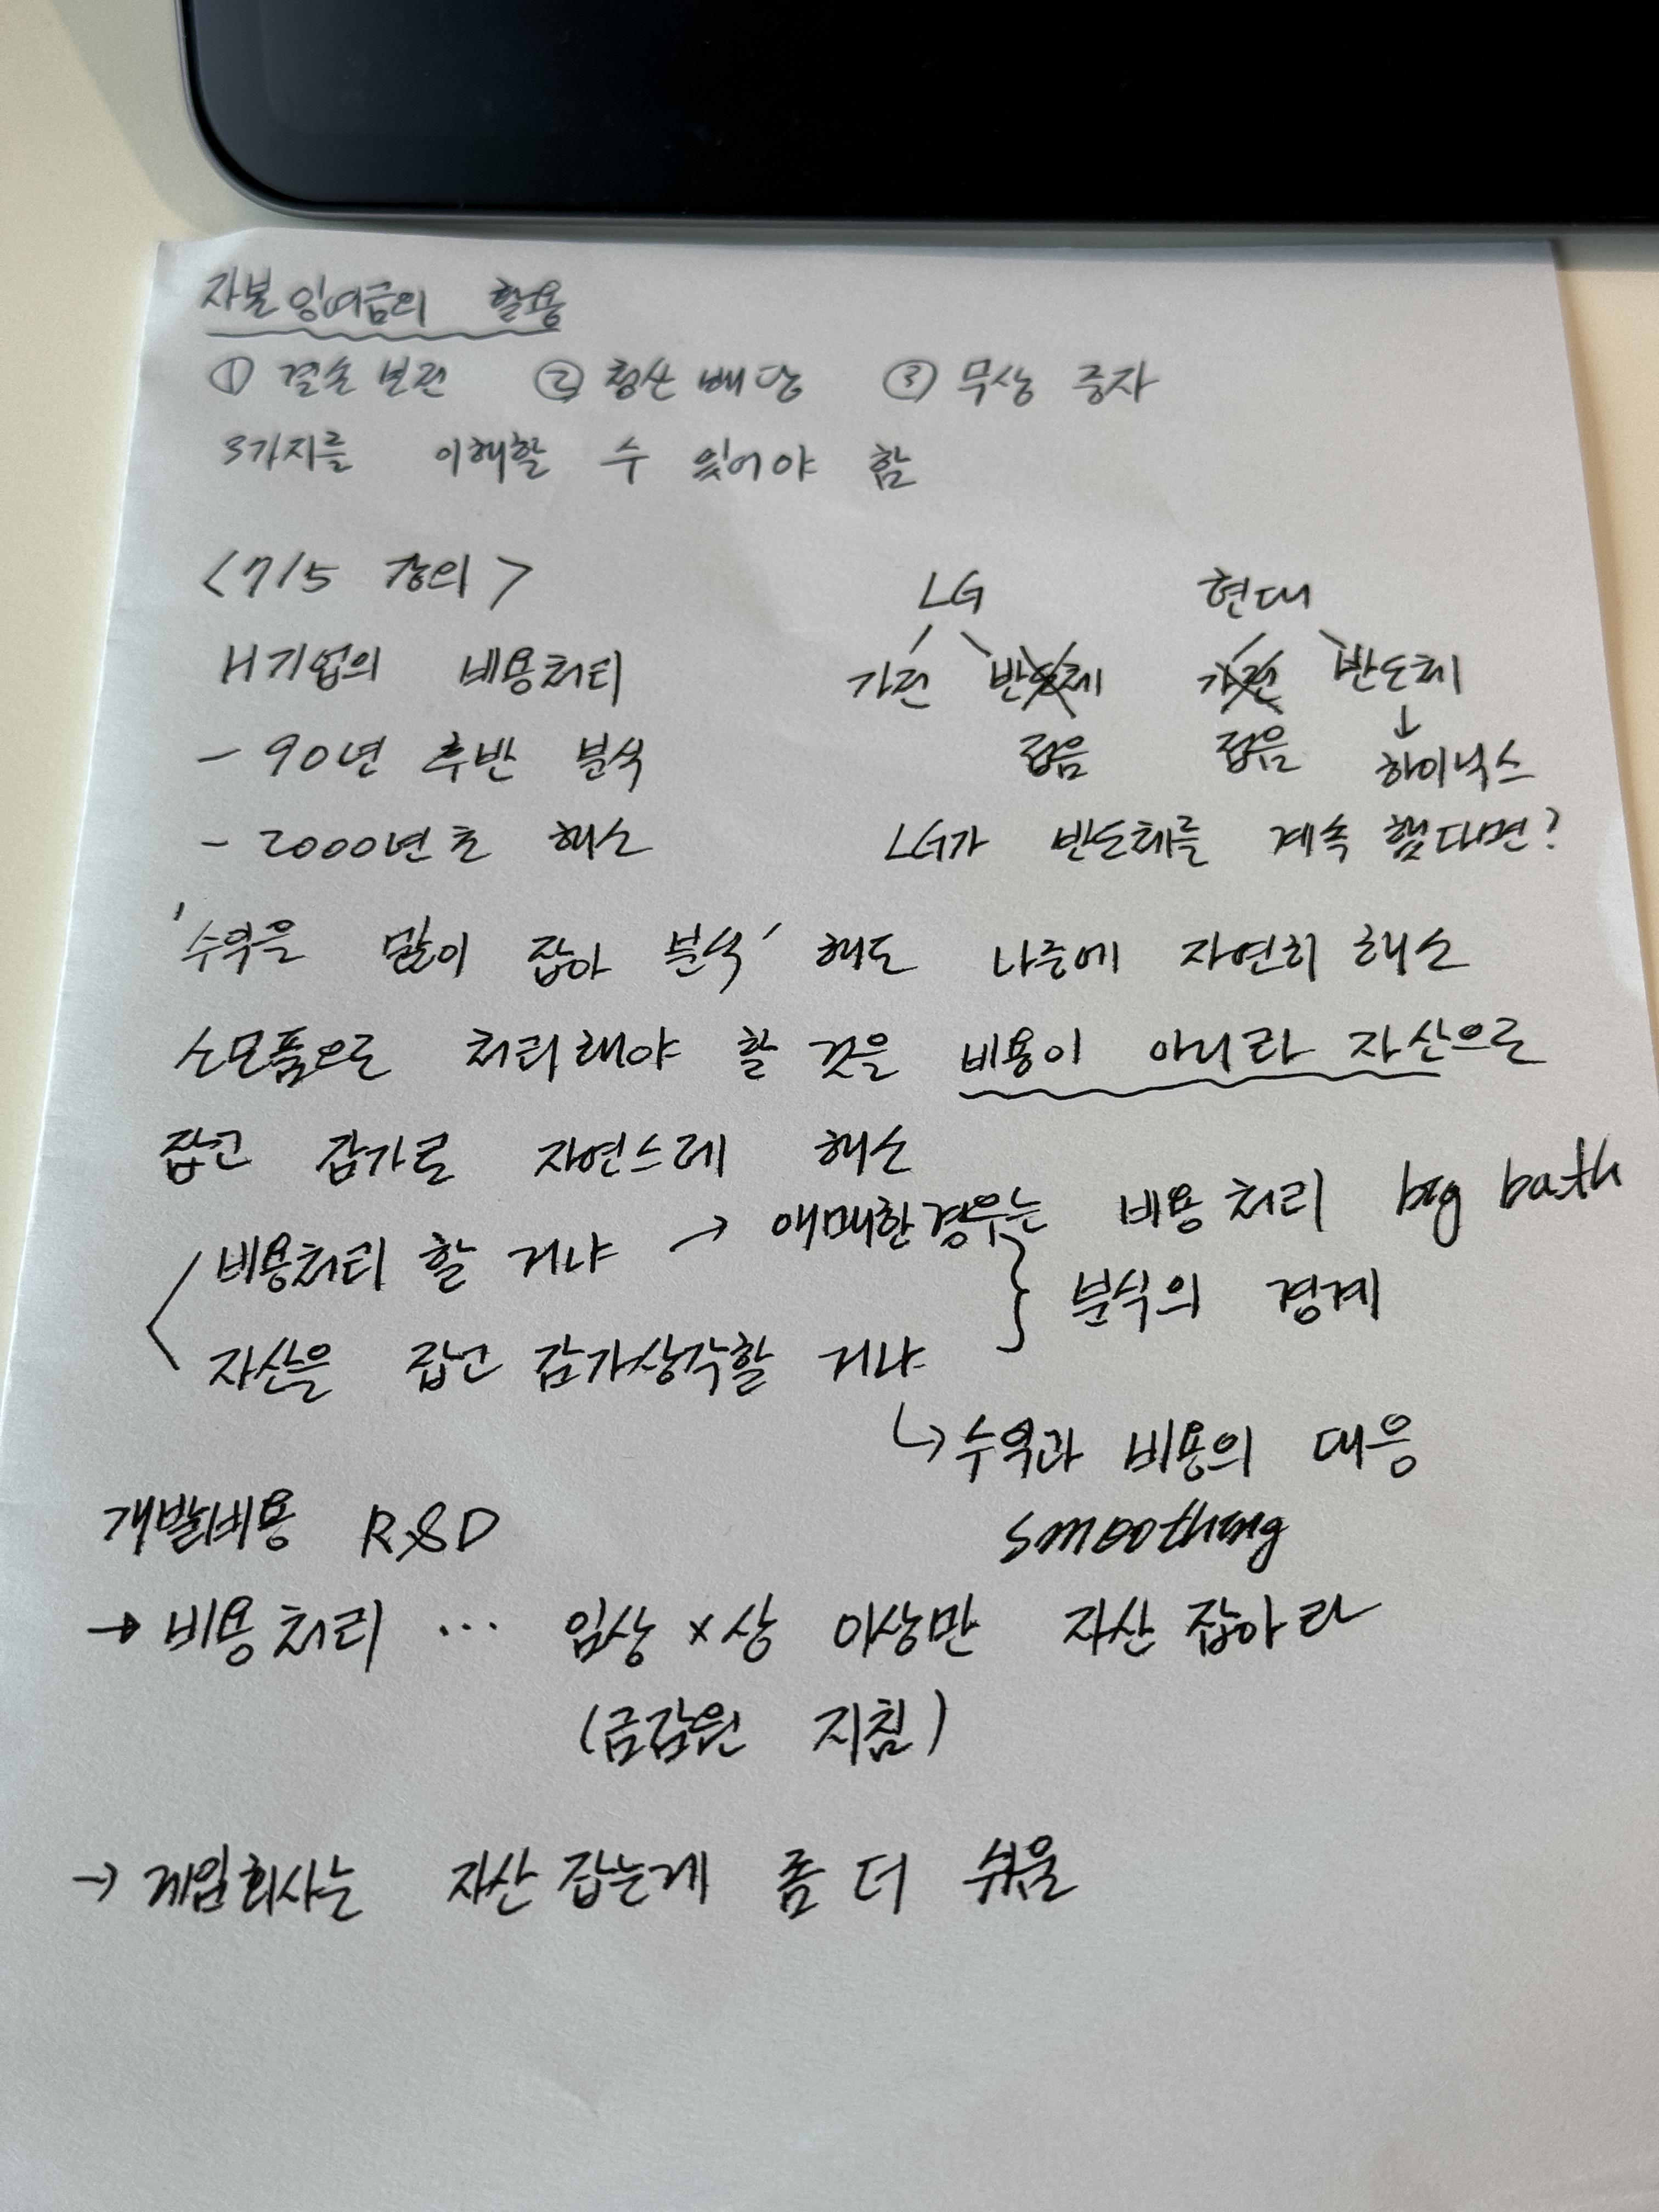 자본잉여금의 활용
① 결손 보전 ② 청산 배당 ③ 무상 증자
3가지를 이해할 수 있어야 함
<7/5 강의>
H기업의 비용처리
- 90년 후반 분식
- 2000년초 해소
LG 현대
가전 반도체 가전 반도체
접음 접음 ↓
하이닉스
LG가 반도체를 계속 했다면?
'수익을 많이 잡아 분식' 해도 나중에 자연히 해소
소모품으로 처리해야 할 것을 비용이 아니라 자산으로
잡고 감가로 자연스레 해소
비용처리 할 거냐 → 애매한경우는 비용처리 big bath
자산을 잡고 감가상각할 거냐 } 분식의 경계
↳ 수익과 비용의 대응
smoothing
개발비용 R&D
→ 비용처리 ... 임상 x상 이상만 자산 잡아라
(금감원 지침)
→ 게임회사는 자산 잡는게 좀 더 쉬움